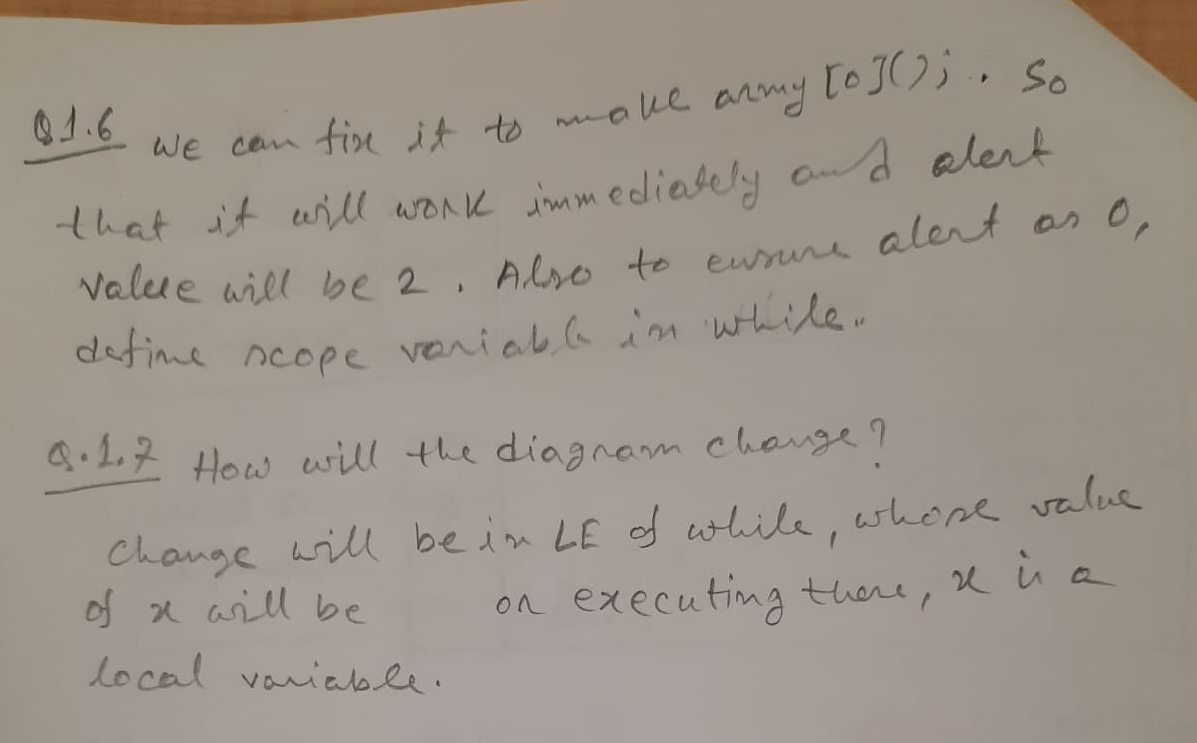 Q1.6 we can fix it to make army [0]();. So
that it will work immediately and alert
value will be 2. Also to ensure alert as 0,
define scope variable in while..
Q.1.7 How will the diagram change?
Change will be in LE of while, whose value
of x will be on executing there, x is a
local variable.